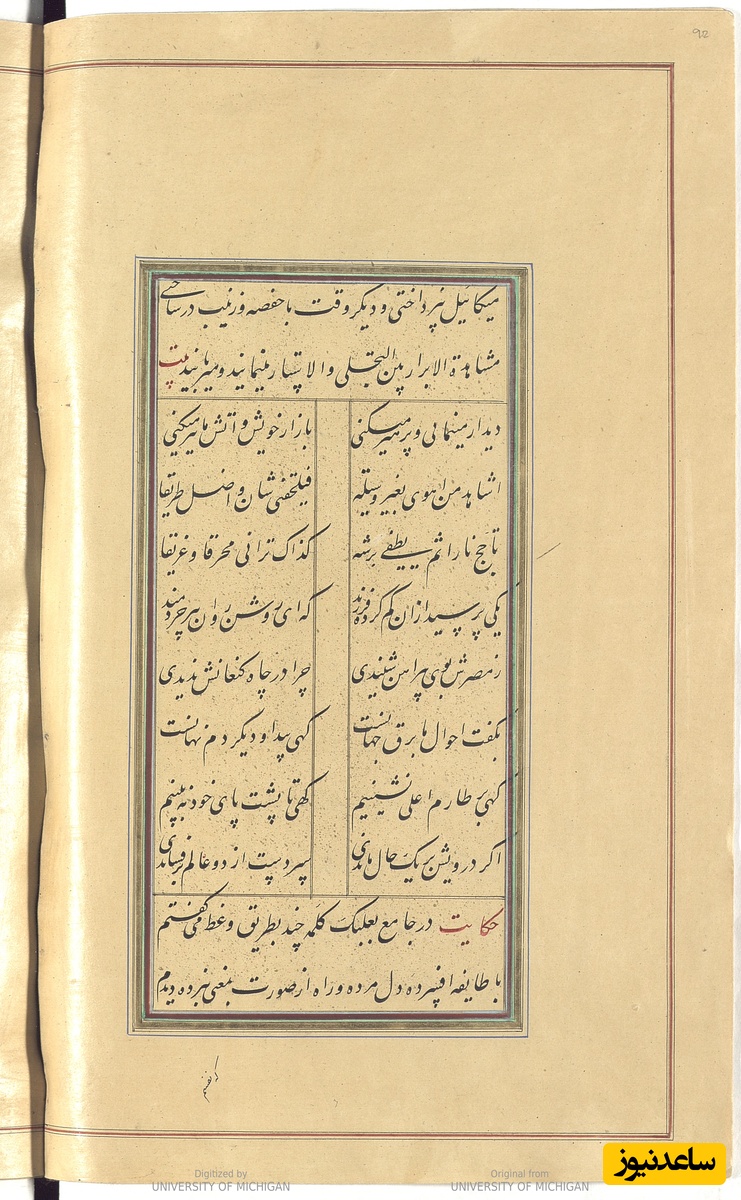 ۹۵
میکائیل نپرداختی و دیگر وقت با حفصه و زینب درساختی
مشاهدة الابرار بین التجلی والاستتار مینمایند و میربایند بیت
دیدار مینمایی و پرهیز میکنی بازار خویش و آتش ما تیز میکنی
اشاهد من اهوی بغیر وسیلة فیلحقنی شان و اضل طریقا
تاجج نارا ثم یطفی برشه کذاک ترانی محرقا و غریقا
یکی پرسید از ان گم کرده فرزند که ای روشن روان پیر خردمند
ز مصرش بوی پیراهن شنیدی چرا در چاه کنعانش ندیدی
بگفت احوال ما برق جهانست گهی پیدا و دیگر دم نهانست
گهی بر طارم اعلی نشینیم گهی تا پشت پای خود نه بینیم
اگر درویش بر یک حال ماندی سر دست از دو عالم برفشاندی
حکایت در جامع بعلبک کلمهٔ چند بطریق وعظ می گفتم
با طایفه افسرده دل مرده و راه از صورت بمعنی نبرده دیدم
که نفسم
ساعدنیوز
Digitized by
UNIVERSITY OF MICHIGAN
Original from
UNIVERSITY OF MICHIGAN